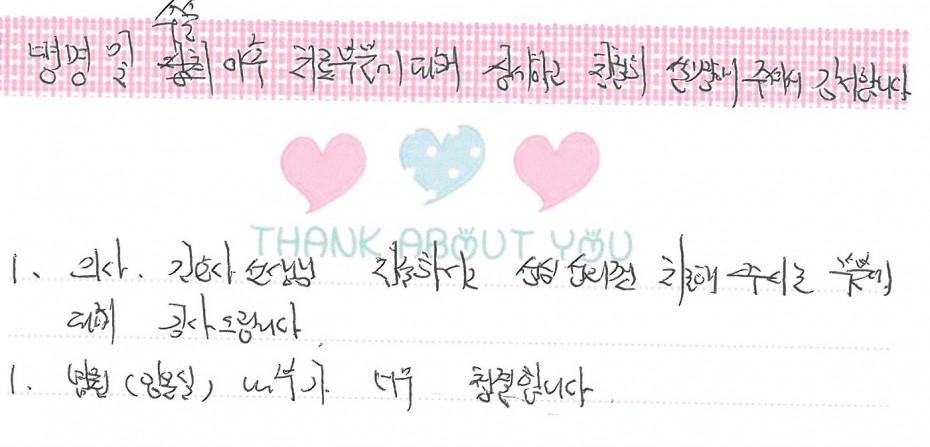 병명 및 수술 이후 치료부분에 대해 친절히 설명해 주셔서 감사합니다
THANK ABOUT YOU
1. 의사. 간호사 선생님 친절하시고 치료해 주시는 부분에
대해 감사드립니다
1. 병원(입원실) 내부가 너무 청결합니다